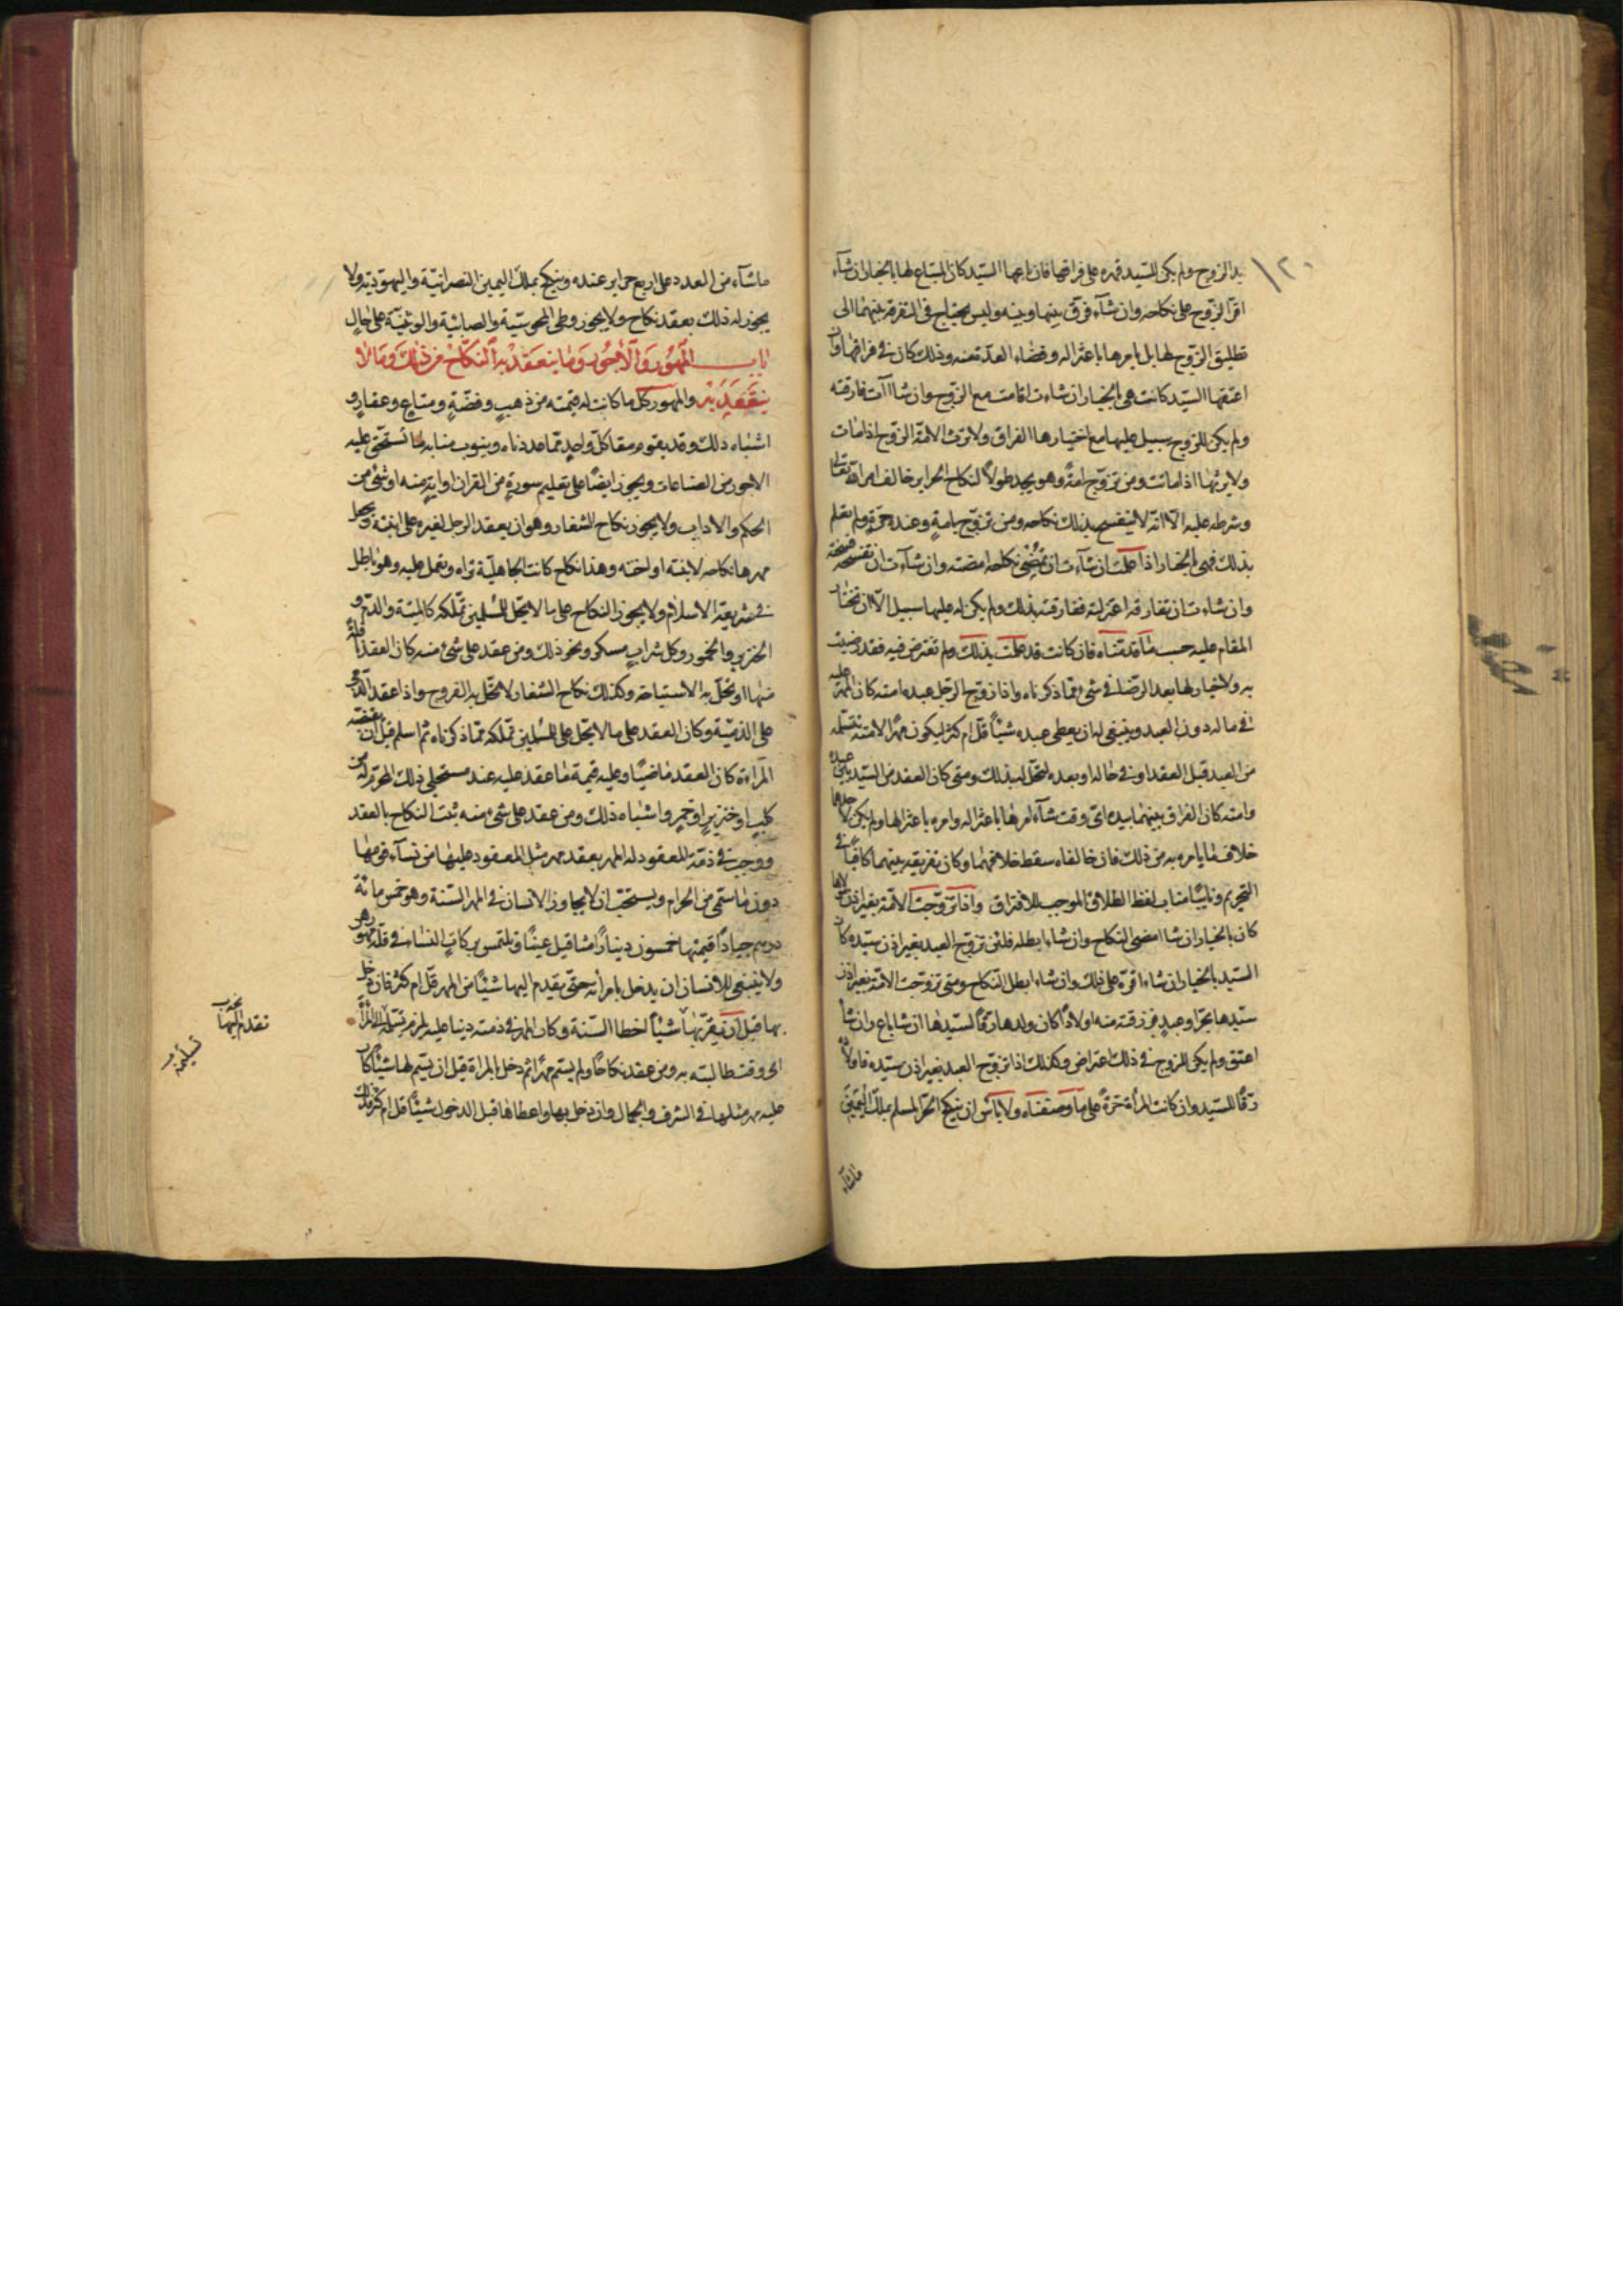 ١٢٠
يد الزوج ولم يكن للسيد قهره على فراقها فان باعها السيد كان المبتاع لها بالخيار ان شآء
اقر الزوج على نكاحه وان شآء فرق بينهما وبينه وليس يحتاج في التفرقة بينهما الى
تطليق الزوج لها بل يامرها باعتزاله وقضاء العدة منه وذلك كاف في فراقها وان
اعتقها السيد كانت هي بالخيار ان شاءت اقامت مع الزوج وان شاآت فارقته
ولم يكن للزوج سبيل عليها مع اختيارها الفراق ولا ترث الامة الزوج اذا مات
ولا يرثها اذا ماتت ومن تزوج امة وهو يجد طولاً لنكاح الحراير خالف امر الله تعالى
وشرطه عليه الا انه لا ينفسخ بذلك نكاحه ومن تزوج بامة وعنده حرة ولم تعلم
بذلك فهي بالخيار اذا علمت ان شآءت ان تمضي نكاحه امضته وان شآءت ان تفسخه فسخته
وان شاءت ان تفارقه اعتزلته ففارقته بذلك ولم يكن له عليها سبيل الا ان تختار
المقام عليه حسب ما قدمناه فان كانت قد علمت بذلك ولم تعترض فيه فقد رضيت
به ولا خيار لها بعد الرضا في شئ مما ذكرناه واذا زوج الرجل عبده امته كان المهر عليه
في ماله دون العبد وينبغي له ان يعطي عبده شيئاً قل ام كثر ليكون مهراً لامته تتسلمه
من العبد قبل العقد او في حاله او بعده لتحل له بذلك ومتى كان العقد من السيد بين عبده
وامته كان الفراق بينهما بيده اي وقت شآء امرها باعتزاله وامره باعتزالها ولم يكن لاحدهما
خلاف ما يامره به من ذلك فان خالفاه سقط خلافهما وكان تفريقه بينهما كافياً في
التحريم ونايباً مناب لفظ الطلاق الموجب للافتراق واذا تزوجت الامة بغير اذن مولاها
كان بالخيار ان شا امضى النكاح وان شاء ابطله فلئن تزوج العبد بغير اذن سيده كان
السيد بالخيار ان شاء اقره على ذلك وان شاء ابطل النكاح ومتى تزوجت الامة بغير اذن
سيدها بحر او عبد فرزقته منه اولاداً كان ولدها رقاً لسيدها ان شا باع وان شا
اعتق ولم يكن للزوج في ذلك اعتراض وكذلك اذا تزوج العبد بغير اذن سيده فاولاده
رقاً للسيد وان كانت المرأة حرة على ما وصفناه ولا باس ان ينكح الحر المسلم بملك اليمين
ماشآء
ماشآء من العدد على اربع حراير عنده وينكح بملك اليمين النصرانية واليهودية ولا
يجوز له ذلك بعقد نكاح ولا يجوز وطى المجوسية والصابئية والوثنية على حال
باب المهور والاجور وما ينعقد به النكاح من ذلك وما لا
ينعقد به والمهور كل ما كانت له قيمة من ذهب وفضة ومتاع وعقار و
اشباه ذلك وقد يقوم مقام كل واحد مما عددناه وينوب منابه ما تستحق عليه
الاجور من الصناعات ويجوز ايضاً على تعليم سورة من القران او اية منه او شئ من
الحكم والاداب ولا يجوز نكاح الشغار وهو ان يعقد الرجل لغيره على ابنته ويجعل
مهرها نكاحه لابنته او اخته وهذا نكاح كانت الجاهلية تراه وتعمل عليه وهو باطل
في شريعة الاسلام ولا يجوز النكاح على ما لا يحل للمسلمين تملكه كالميتة والدم و
الخنزير والخمور وكل شراب مسكر ونحو ذلك ومن عقد على شئ منه كان العقد
منها او تحل به الاستباحة وكذلك نكاح الشغار لا تحل به الفروج واذا عقد الذمي
على الذمية وكان العقد على ما لا يحل على المسلمين تملكه مما ذكرناه ثم اسلم قبل ان تقبضه
المراءة كان العقد ماضياً وعليه قيمة ما عقد عليه عند مستحلي ذلك المحرم له من
كلب او خنزير او خمر واشباه ذلك ومن عقد على شئ منه ثبت النكاح بالعقد
ووجب في ذمة المعقود له المهر بعقد مهر مثل المعقود عليها من نسآء قومها
دون ما سمى من الحرام ويستحب ان لا يجاوز الانسان في المهر السنة وهو خمس مائة
درهم جياداً قيمتها خمسون ديناراً مثاقيل عيناً ويلتمس بركات النساء في قلة مهورهن
ولا ينبغي للانسان ان يدخل بامرأته حتى يقدم اليها شيئاً من المهر قل ام كثر فان دخل
بها قبل ان يقربها شيئاً اخطا السنة وكان المهر في ذمته دينا عليه يلزمه تسليمه الى المرأة
اي وقت طالبته به ومن عقد نكاحاً ولم يسم مهراً ثم دخل بالمراة قبل ان يسم لها شيئاً كان
عليه مهر مثلها في الشرف والجمال وان دخل بها واعطاها قبل الدخول شيئاً قل ام كثر فذلك